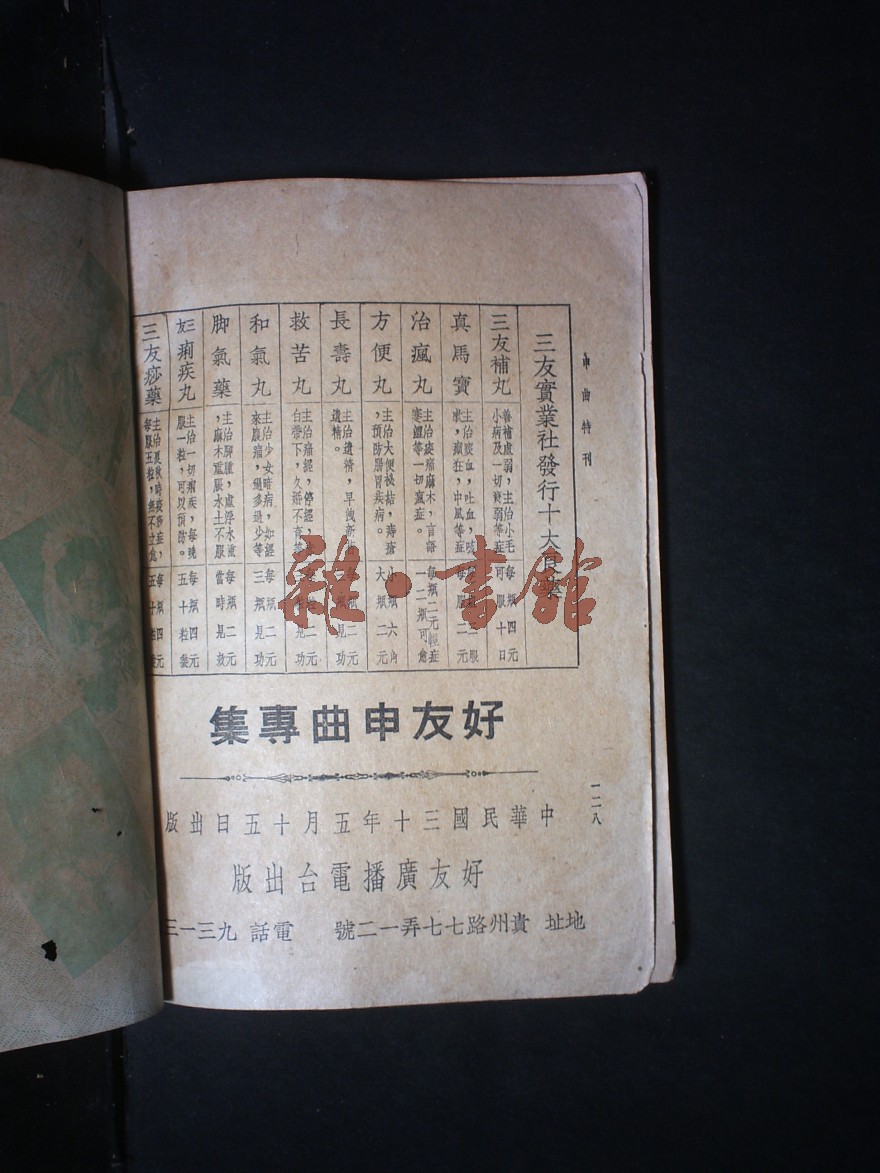 申曲特刊
三友實業社發行十大良藥
三友補丸
善補虛弱，主治小毛
小病及一切衰弱等症
每瓶四元
可服十日
真馬寶
主治痰血，吐血，咳
狀，癲狂，中風等症
治瘋丸
主治痠痛麻木，言語
蹇澀等一切瘋症。
每瓶二元輕症
一二瓶可愈
方便丸
主治大便秘結，痔瘡
，預防腸胃疾病。
小瓶六角
大瓶二元
長壽丸
主治遺精，早洩新舊
遺精。
救苦丸
主治痛經，停經，
白帶下，久不育等
和氣丸
主治少女暗病，如經
來腹痛，過多過少等
每瓶二元
三瓶見功
脚氣藥
主治脚腫，虛浮水腫
，麻木重墜水土不服
每瓶二元
當時見效
三友痢疾丸
主治一切痢疾，每晚
服一粒，可以預防。
每瓶四元
五十粒裝
三友痧藥
主治夏秋時疫痧症，
每服五粒，無不立愈
每瓶四元
五十粒裝
好友申曲專集
中華民國三十年五月十五日出版
好友廣播電台出版
地址 貴州路七七弄一二號 電話 九三一三
一二八
雜·書館